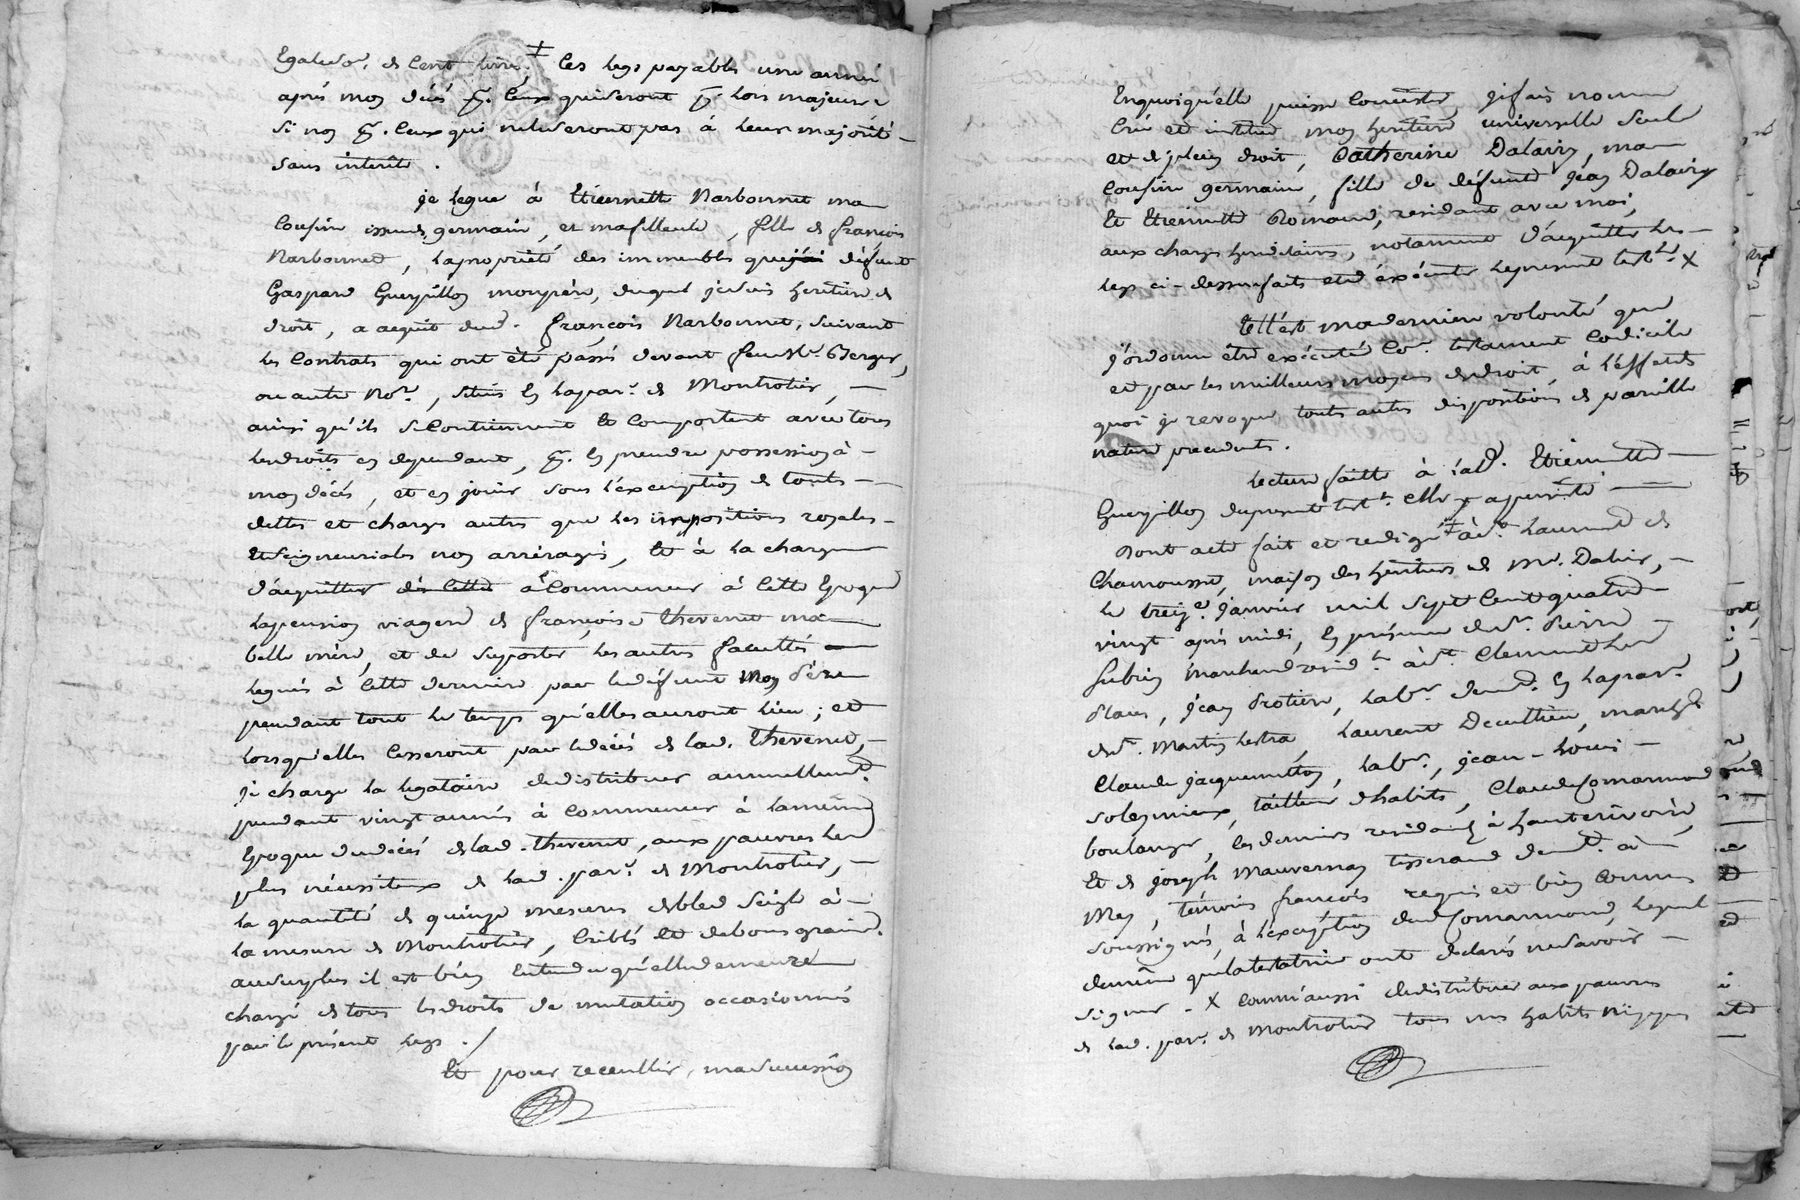 de Cent livres ‡ Ces legs payables une année
après mon décès pr. Ceux qui seront pr. lors majeurs
si non pr. ceux qui ne le seront pas à leur majorité –
sans interêt .
je legue à Etiennette Narbonnet ma
Cousine issue germaine, et ma filleule, fille de françois
Narbonnet, la propriété des immeubles que j'ai défunt
Gaspard Guerpillon mon père, duquel je suis heritiere de
droit, a acquit dud. françois Narbonnet, suivant
les Contrats qui ont été passés devant feu Mr. Berger,
ou autre Nore., situés en la par. de Montrotier, —
ainsi qu'ils se Contiennent et Comportent avec tous
les droits en dependant, pr. en prendre possession à –
mon décès, et en jouir sous l'exemption de toutes –
dettes et charges autres que les impositions royales –
et Seigneuriales non arréragés, et à la charge
d'acquitter dès cette à Commencer à Cette Epoque
la pension viagere de françoise thevenet ma
belle mère, et de suporter les autres facultés
legués à Cette derniere par le défunt mon Père
pendant tout le temps qu'elles auront lieu ; et
lorsqu'elles Cesseront par le décès de lad. thevenet, –
je charge la legataire de distribuer annuellemt.
pendant vingt années à Commencer à la même
Epoque du décès de lad. thevenet, aux pauvres les
plus nécessiteux de lad. par. de Montrotier, –
la quantité de quinze mesures de bled Seigle à –
la mesure de Montrotier, Criblés et de bons grains.
au surplus il est bien Entendu qu'elle demeure
chargé de tous les droits de mutation occasionnés
par le présent legs ./
Et pour receuillir, ma Succession
En quoi qu'elle puisse Consister, je fais nomme
Crée et institue mon heritiere universelle Seule
et de plein droit, Catherine Dalairy, ma
Cousine germaine, fille de défunts jean Dalairy
Et Etiennette Romand, residant avec moi,
aux charges hereditaires, notamment d'acquitter les –
legs ci-dessus faits et d'éxécuter le present test. X
telle est ma derniere volonté que
j'ordonne être exécuté Co. testament Codicile
et par les meilleurs moyens de droit, à l'effet de
quoi je revoque toutes autres dispositions de pareille
nature precedentes .
Lecture faitte à lad. Etiennette —
Guerpillon du present test. elle y a persisté —
Dont acte fait et redigé ‡ à St. Laurent de
Chamousset, maison des heritiers de Mr. Dalin, –
le treize. janvier mil Sept Cent quatre
vingt après midi, en présence de Sr. Pierre –
Subrin marchand resid. à St. Clement les
Places, jean Protiere, labr. demt. en la par.
de St. Martin lestra, Laurent Decultieu, marchd.
Claude jacquemetton, labr., jean-Louis –
Solegnieux, tailleur d'habits, Claude Comarmond
boulanger, les derniers residants à hauterivoire,
Et de joseph Mauvernay tisserand demt. à
Mey, témoins françois requis et bien Connus
soussignés, à l'exception dud Comarmond, lequel
de même que la testatrice ont declarés ne savoir –
signer . X comm'aussi de distribuer aux pauvres
de lad. par. de Montrotier tous mes habits nippes